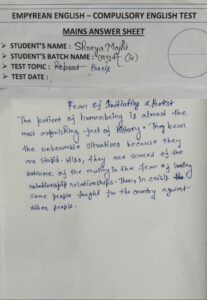 EMPYREAN ENGLISH - COMPULSORY ENGLISH TEST
MAINS ANSWER SHEET
➤ STUDENT'S NAME : Shreya Majhi
➤ STUDENT'S BATCH NAME : (W)
➤ TEST TOPIC : Report Precis
➤ TEST DATE :
Fear of Initiating a Protest
The patient of humanbeing is almost the
most astonishing fact of history. They bear
the unbearable situations because they
are stupid. Also, they are scared of the
outcome of the mutiny in the fear of losing
relationship relationships. Thus, in crisis the
some people fought for the country against
other people.